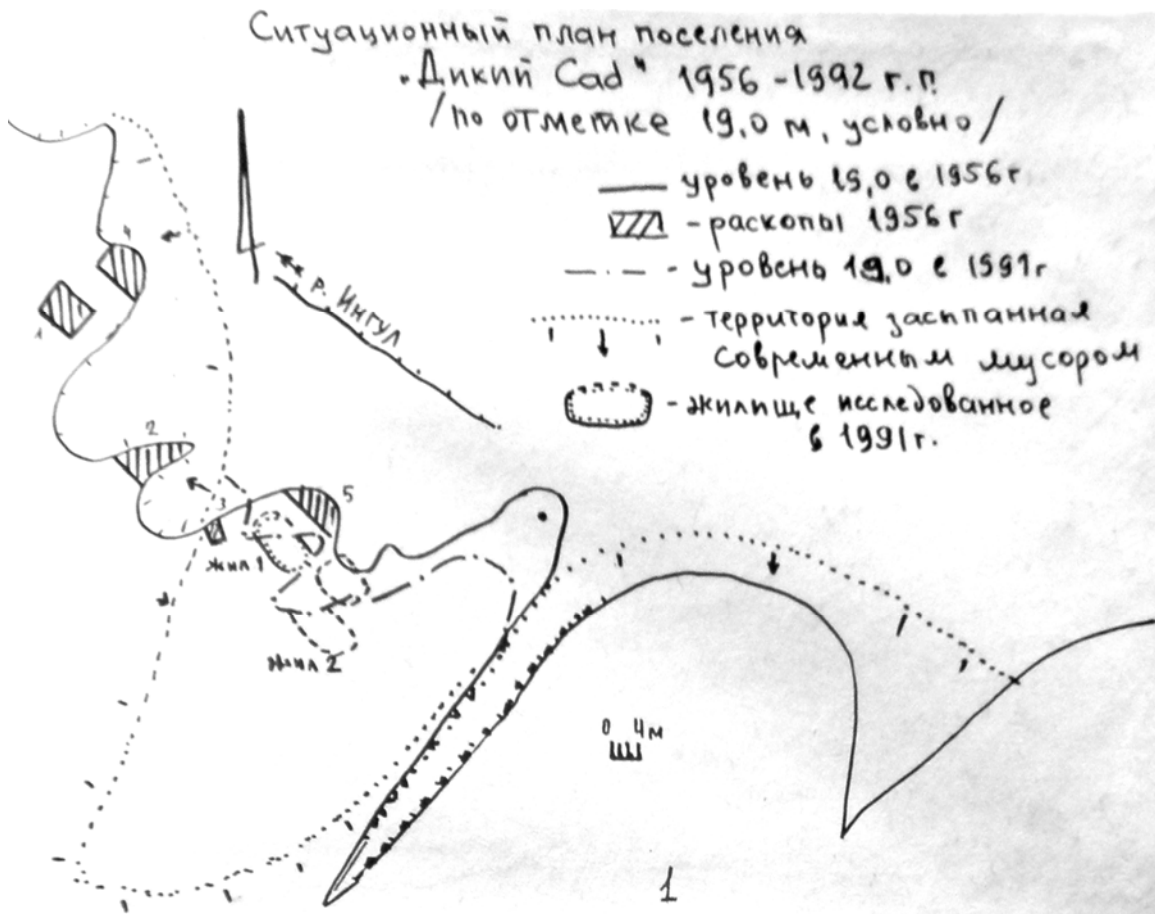 Ситуационный план поселения
"Дикий Сад" 1956-1992 г.г.
/по отметке 19,0 м, условно/
уровень 19,0 в 1956г
- раскопы 1956г
- уровень 19,0 в 1991г
- территория засыпанная
современным мусором
- жилище исследованное
в 1991г.
р. Ингул
4
1
2
3
5
жил 1
жил 2
0 4м
1